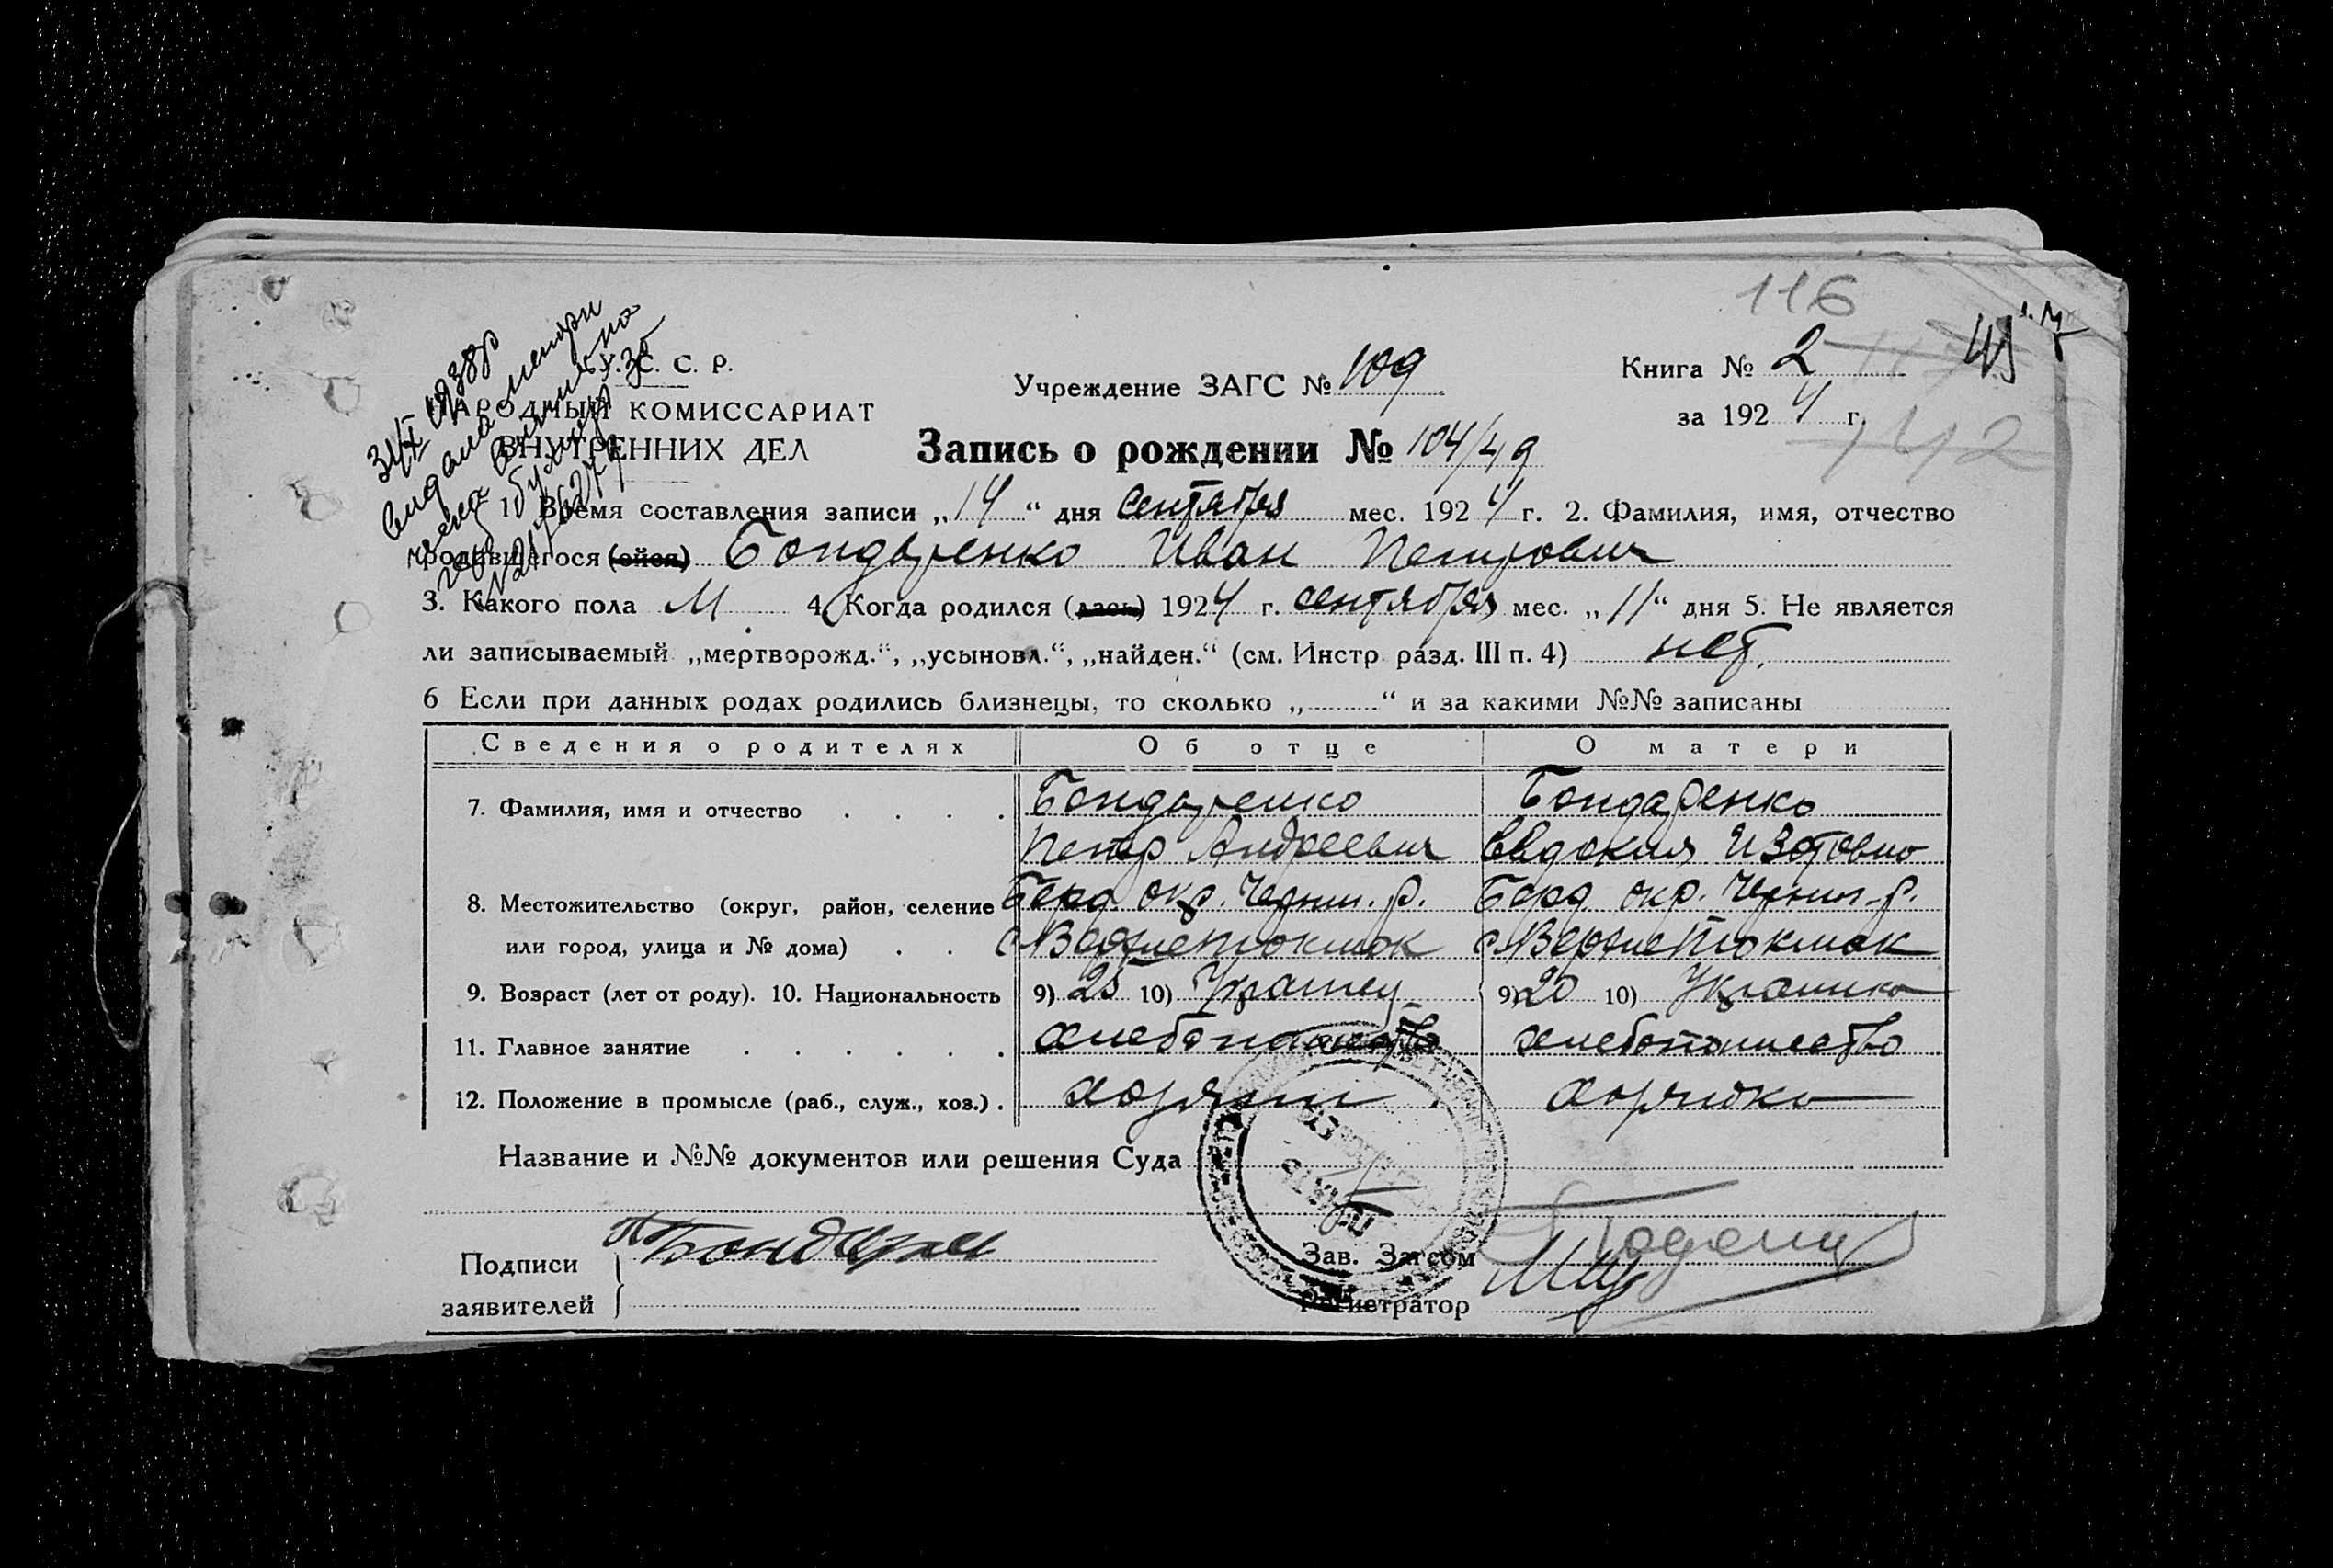 116
У. С. С. Р.
НАРОДНЫЙ КОМИССАРИАТ
ВНУТРЕННИХ ДЕЛ
Учреждение ЗАГС № 109
Книга № 2
за 1924 г.
142
Запись о рождении № 104/49
1. Время составления записи „14“ дня сентября мес. 1924 г. 2. Фамилия, имя, отчество
родившегося (ейся) Бондаренко Иван Петрович
3. Какого пола М 4. Когда родился (лась) 1924 г. сентября мес. „11“ дня 5. Не является
ли записываемый „мертворожд.“, „усыновл.“, „найден.“ (см. Инстр. разд. III п. 4) нет.
6 Если при данных родах родились близнецы, то сколько „ “ и за какими №№ записаны
Сведения о родителях Об отце О матери
7. Фамилия, имя и отчество . . . . Бондаренко Бондаренко
Петр Андреевич Евдокия Изотовна
8. Местожительство (округ, район, селение Берд. окр. Черниг. р. Берд. окр. Черниг. р.
или город, улица и № дома) . . с. Верхнетокмак с. Верхнетокмак
9. Возраст (лет от роду). 10. Национальность 9) 25 10) Украинец 9) 20 10) Украинка
11. Главное занятие . . . . . . хлебопашество хлебопашество
12. Положение в промысле (раб., служ., хоз.) . хозяин хозяйка
Название и №№ документов или решения Суда
Подписи
заявителей
Зав. Загсом
Регистратор